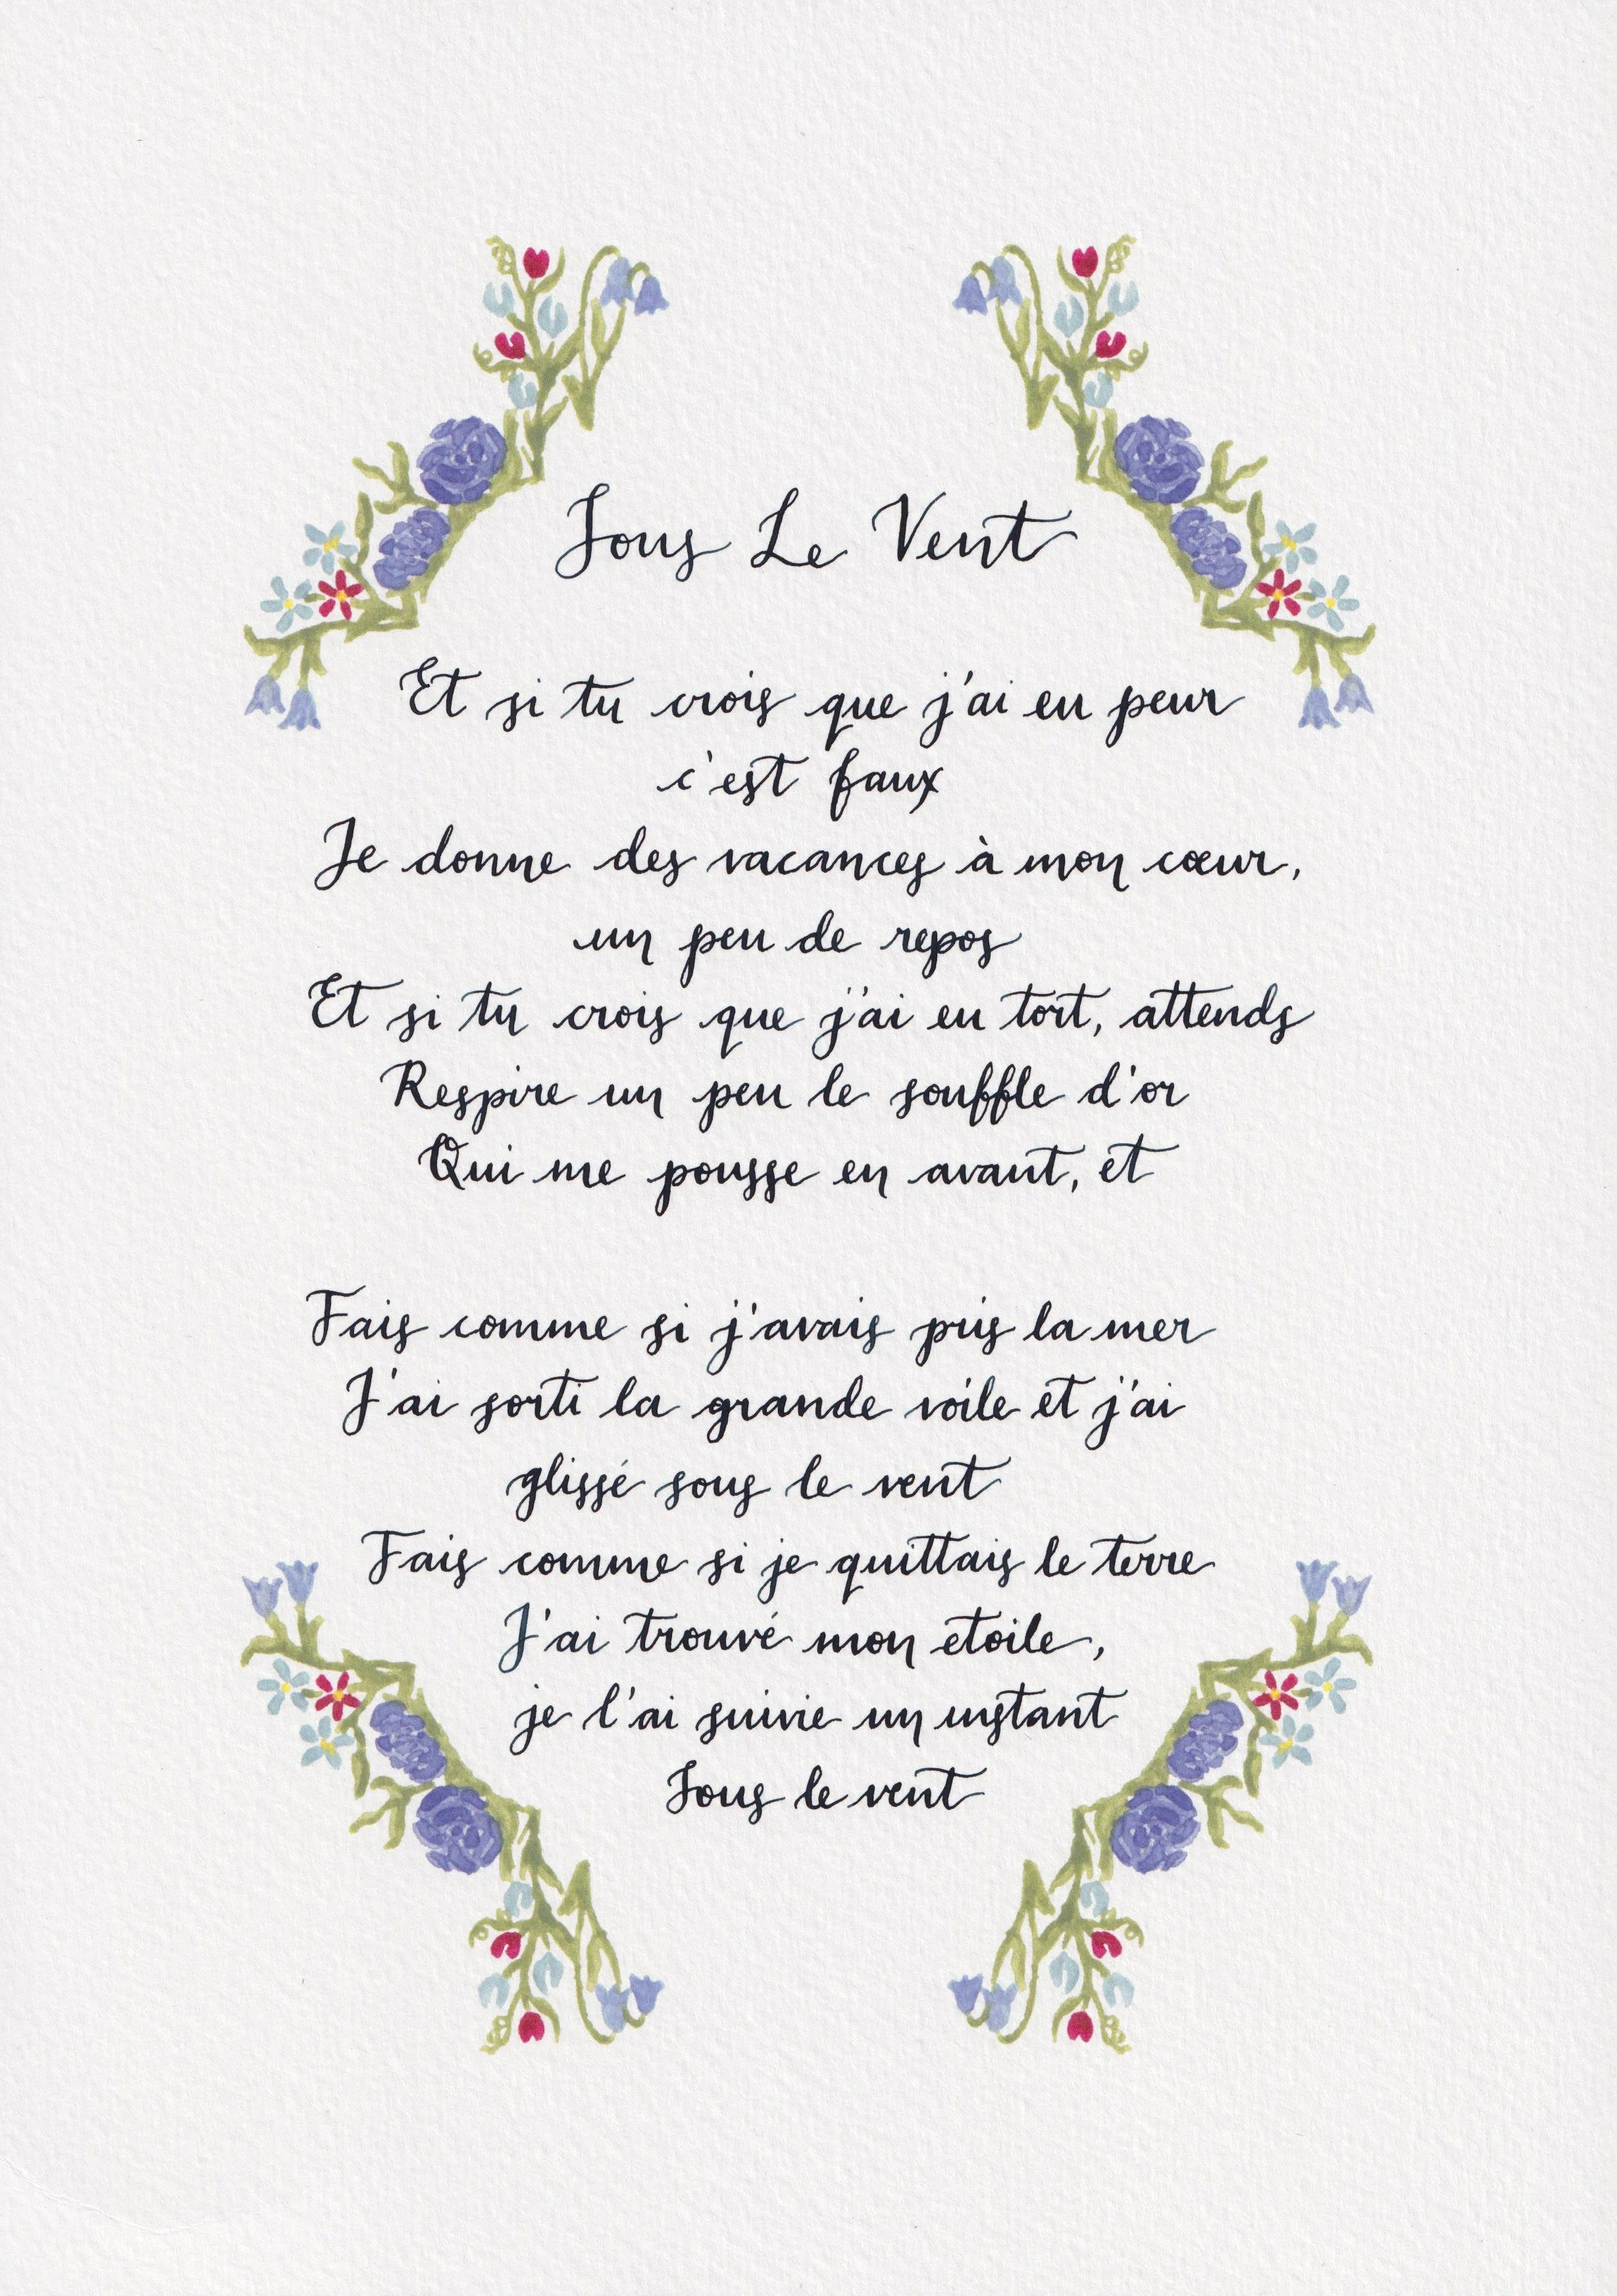 Sous Le Vent
Et si tu crois que j'ai eu peur
c'est faux
Je donne des vacances à mon cœur,
un peu de repos
Et si tu crois que j'ai eu tort, attends
Respire un peu le souffle d'or
Qui me pousse en avant, et
Fais comme si j'avais pris la mer
J'ai sorti la grande voile et j'ai
glissé sous le vent
Fais comme si je quittais le terre
J'ai trouvé mon etoile,
je l'ai suivie un instant
Sous le vent